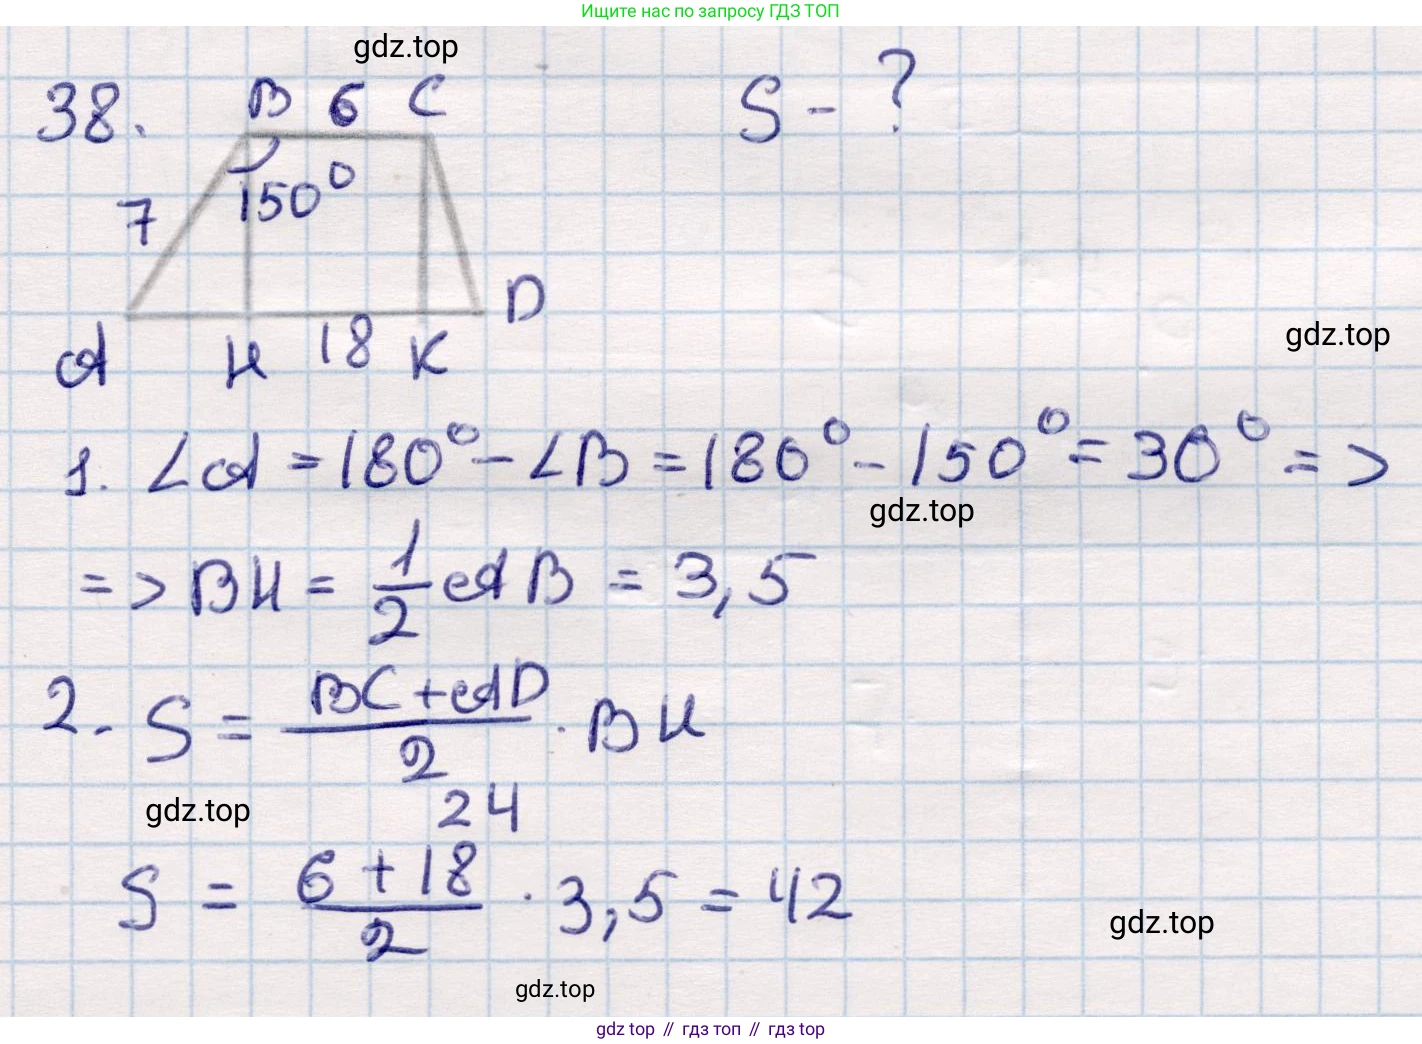 Ищите нас по запросу ГДЗ ТОП
gdz.top
38. B 6 C S - ?
7 150°
D
A H 18 K
gdz.top
1. ∠A = 180° - ∠B = 180° - 150° = 30° =>
gdz.top
=> BH = 1/2 AB = 3,5
2. S = (BC + AD)/2 · BH
gdz.top
24
S = (6 + 18)/2 · 3,5 = 42
gdz.top
gdz.top
gdz top // гдз топ // gdz top